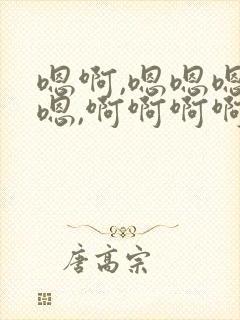 嗯啊,嗯嗯嗯
嗯,啊啊啊啊
唐高宗